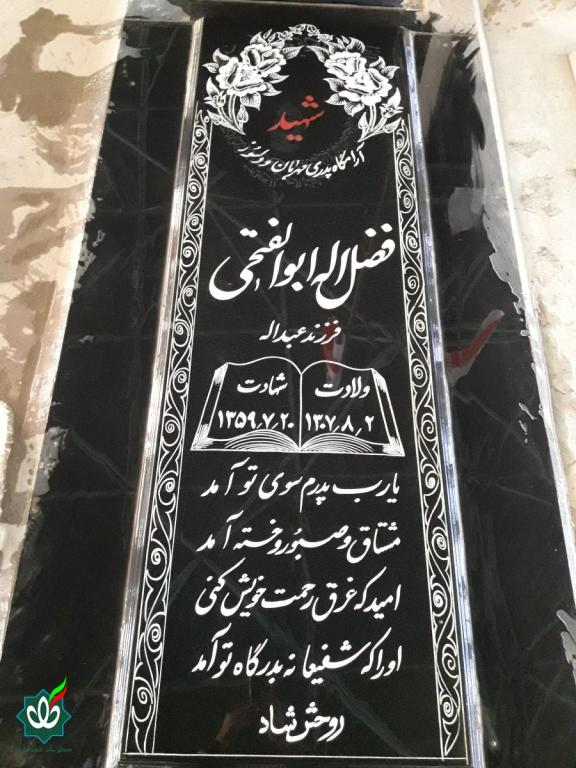 شهید
آرامگاه پدری مهربان و دلسوز
فضل اله ابوالفتحی
فرزند عبداله
ولادت شهادت
۱۳۰۷٫۸٫۲ ۱۳۵۹٫۷٫۲۰
یارب پدرم سوی تو آمد
مشتاق و صبور و خسته آمد
امید که غرق رحمت خویش کنی
او را که شفیعانه بدرگاه تو آمد
روحش شاد